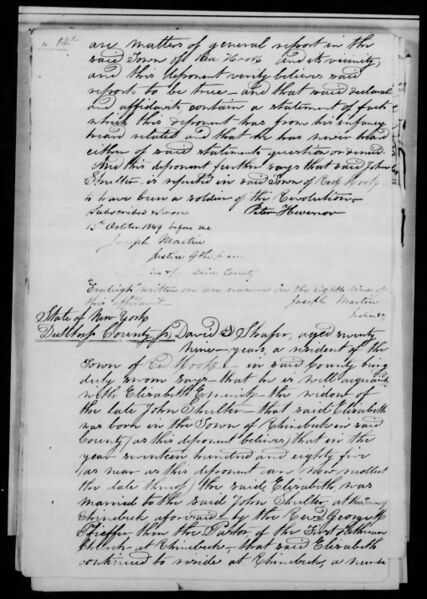 14th
are matters of general report in the
said Town of Red Hook and its vicinity,
and this deponent verily believes said
reports to be true – and that said declaration
and affidavits contain a statement of facts
which this deponent has from his infancy
heard related and that he has never heard
either of said statements questioned or denied.
And this deponent further says that said John
Shulter is reputed in said Town of Red Hook
to have been a soldier of the Revolution –
Subscribed & sworn Peter Hevenor
15th October 1849 before me
Joseph Martin
Justice of the peace
in & for said County
written on an erasure in the eighth line of
this affidavit. Joseph Martin
Justice &c
State of New York
Dutchess County ss David D Shafer, aged seventy
nine – years, a resident of the
Town of Red Hook – in said County being
duly sworn says – that he is well acquainted
with Elizabeth the widow of
the late John Shulter – that said Elizabeth
was born in the Town of Rhinebeck in said
County (as this deponent believes) that in the
year seventeen hundred and eighty five
(as near as this deponent can now recollect
the date thereof) the said Elizabeth was
married to the said John Shulter, at the
Rhinebeck aforesaid by the Revd George
then the Pastor of the First Lutheran
Church at Rhinebeck – that said Elizabeth
continued to reside at Rhinebeck, a number